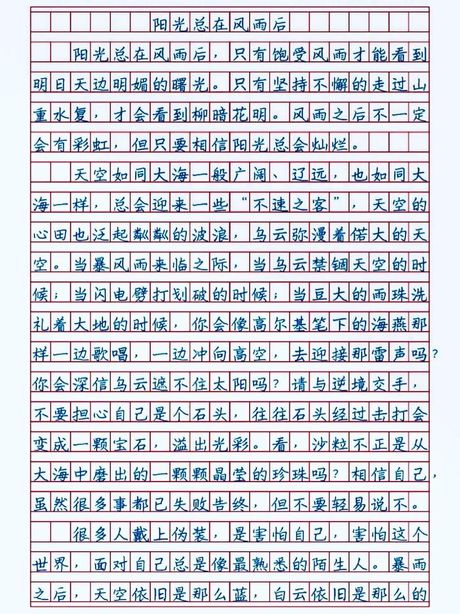 阳光总在风雨后
阳光总在风雨后，只有饱受风雨才能看到
明日天边明媚的曙光。只有坚持不懈的走过山
重水复，才会看到柳暗花明。风雨之后不一定
会有彩虹，但只要相信阳光总会灿烂。
天空如同大海一般广阔、辽远，也如同大
海一样，总会迎来一些“不速之客”，天空的
心田也泛起粼粼的波浪，乌云弥漫着偌大的天
空。当暴风雨来临之际，当乌云禁锢天空的时
候；当闪电劈打划破的时候；当豆大的雨珠洗
礼着大地的时候，你会像高尔基笔下的海燕那
样一边歌唱，一边冲向高空，去迎接那雷声吗？
你会深信乌云遮不住太阳吗？请与逆境交手，
不要担心自己是个石头，往往石头经过击打会
变成一颗宝石，溢出光彩。看，沙粒不正是从
大海中磨出的一颗颗晶莹的珍珠吗？相信自己，
虽然很多事都已失败告终，但不要轻易说不。
很多人戴上伪装，是害怕自己，害怕这个
世界，面对自己总是像最熟悉的陌生人。暴雨
之后，天空依旧是那么蓝，白云依旧是那么的